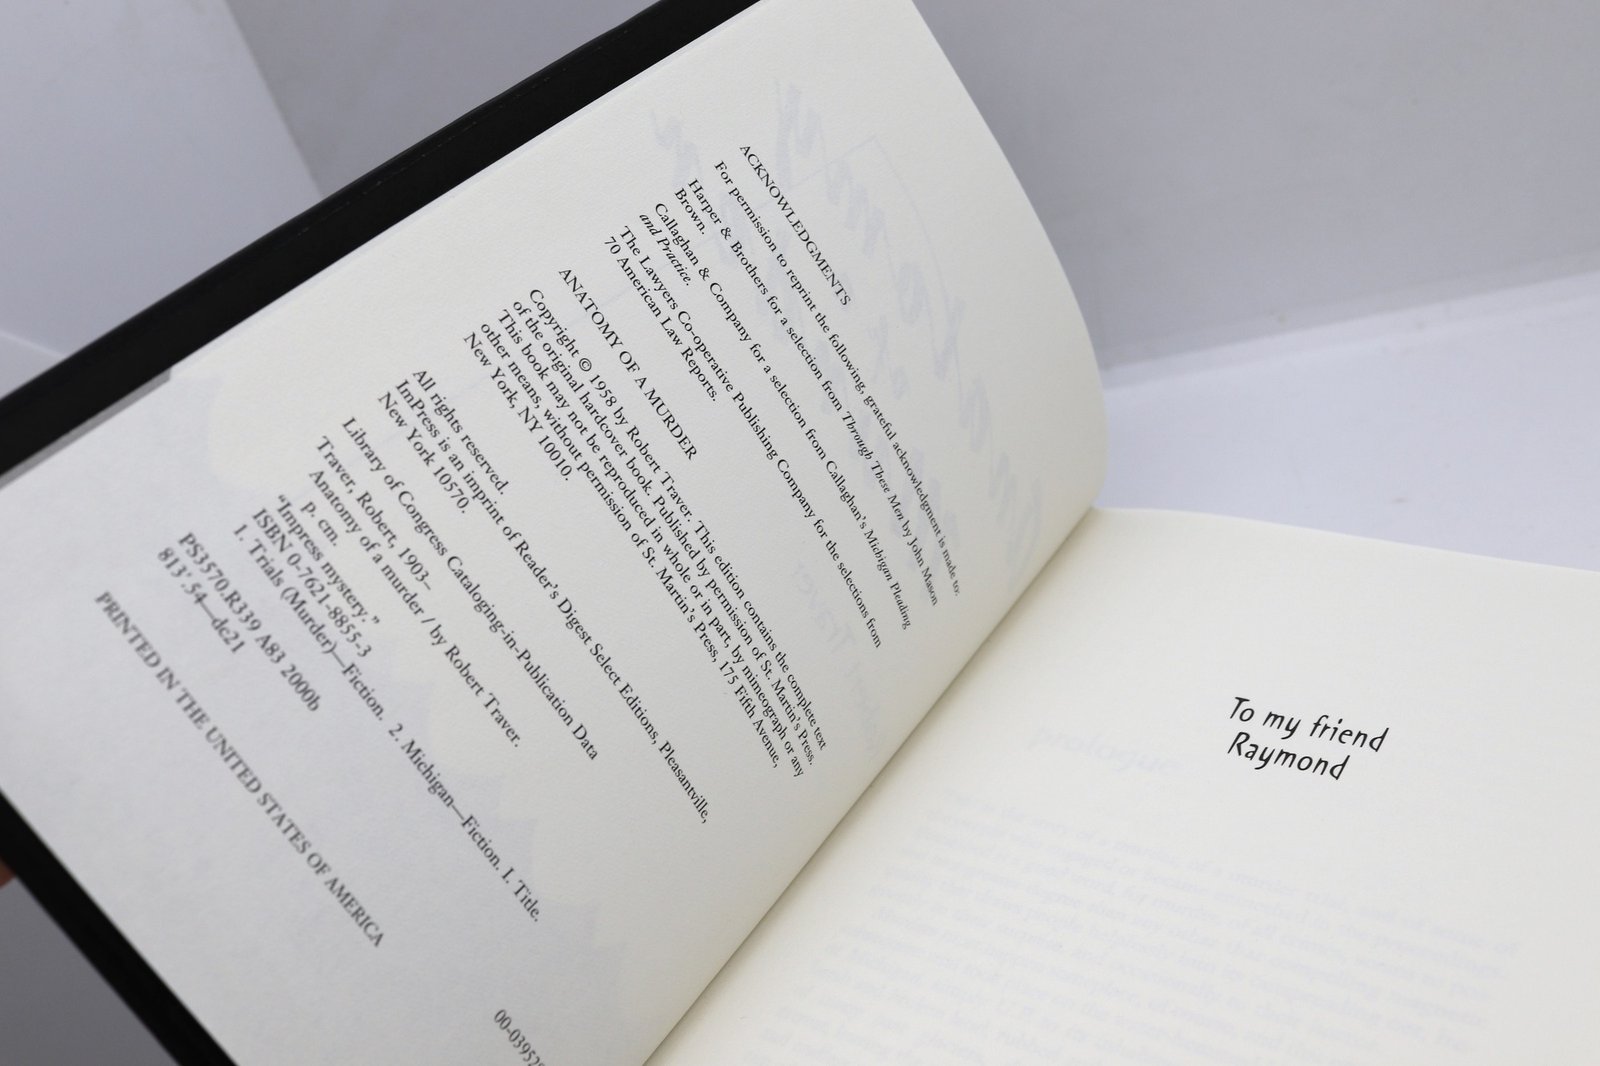 ACKNOWLEDGMENTS
For permission to reprint the following, grateful acknowledgment is made to:
Harper & Brothers for a selection from Through These Men by John Mason
Brown.
Callaghan & Company for a selection from Callaghan's Michigan Pleading
and Practice.
The Lawyers Co-operative Publishing Company for the selections from
70 American Law Reports.
ANATOMY OF A MURDER
Copyright © 1958 by Robert Traver. This edition contains the complete text
of the original hardcover book. Published by permission of St. Martin's Press.
This book may not be reproduced in whole or in part, by mimeograph or any
other means, without permission of St. Martin's Press, 175 Fifth Avenue,
New York, NY 10010.
All rights reserved.
ImPress is an imprint of Reader's Digest Select Editions, Pleasantville,
New York 10570.
Library of Congress Cataloging-in-Publication Data
Traver, Robert, 1903–
Anatomy of a murder / by Robert Traver.
p. cm.
"Impress mystery."
ISBN 0-7621-8855-3
1. Trials (Murder)—Fiction. 2. Michigan—Fiction. I. Title.
PS3570.R339 A83 2000b
813'.54—dc21
PRINTED IN THE UNITED STATES OF AMERICA
To my friend
Raymond